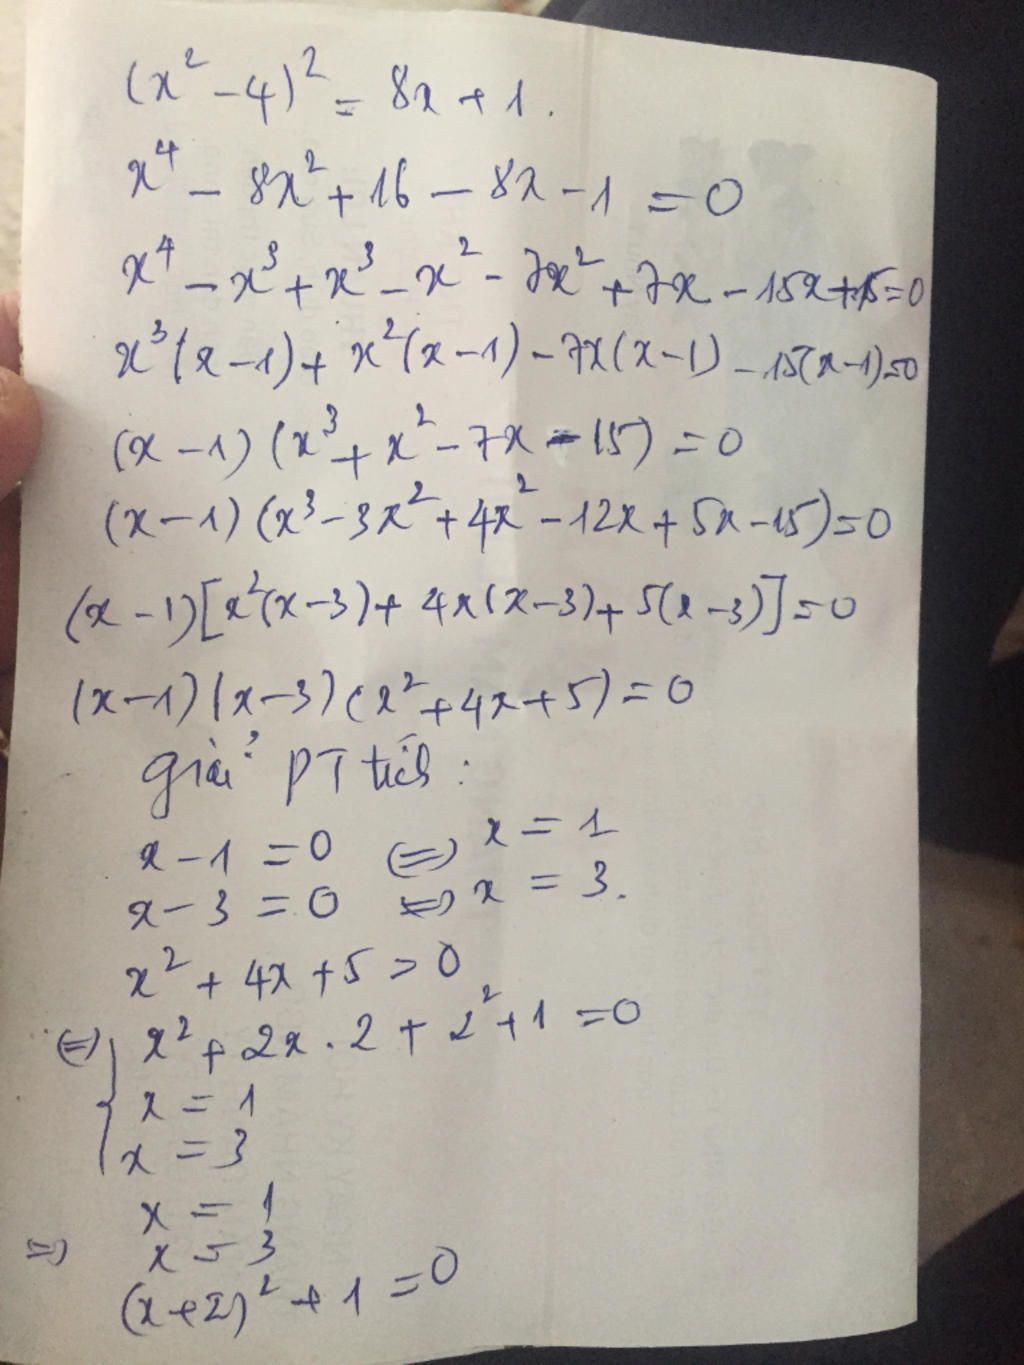 (x² - 4)² = 8x + 1.
x⁴ - 8x² + 16 - 8x - 1 = 0
x⁴ - x³ + x³ - x² - 7x² + 7x - 15x + 15 = 0
x³(x - 1) + x²(x - 1) - 7x(x - 1) - 15(x - 1) = 0
(x - 1) (x³ + x² - 7x - 15) = 0
(x - 1) (x³ - 3x² + 4x² - 12x + 5x - 15) = 0
(x - 1) [x²(x - 3) + 4x(x - 3) + 5(x - 3)] = 0
(x - 1) (x - 3) (x² + 4x + 5) = 0
giải PT tích :
x - 1 = 0 ⇔ x = 1
x - 3 = 0 ⇔ x = 3.
x² + 4x + 5 > 0
⇔ { x² + 2x . 2 + 2² + 1 = 0
x = 1
x = 3
x = 1
⇒ x = 3
(x + 2)² + 1 = 0